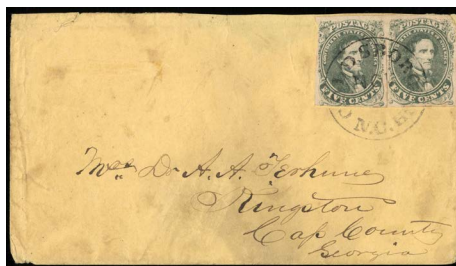 POSTAGE POSTAGE
FIVE CENTS FIVE CENTS
N.C.
Mrs Dr A. A. Terhune
Kingston
Cap County
Georgia